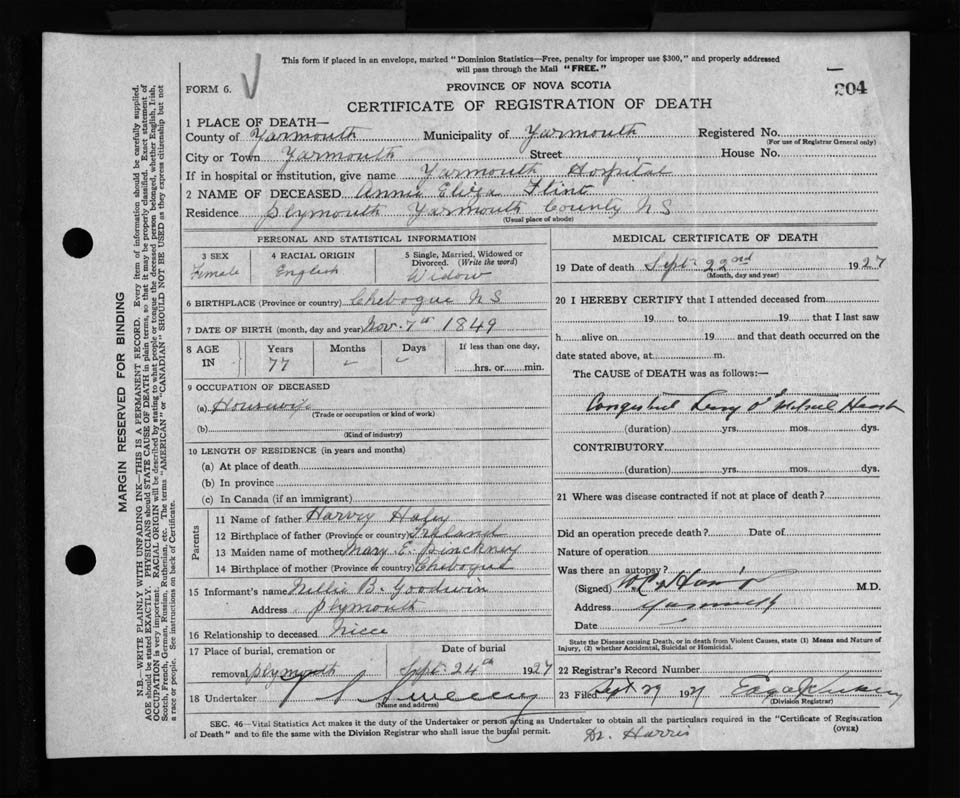 This form if placed in an envelope, marked "Dominion Statistics—Free, penalty for improper use $300," and properly addressed
will pass through the Mail "FREE."
204
FORM 6.
PROVINCE OF NOVA SCOTIA
CERTIFICATE OF REGISTRATION OF DEATH
1 PLACE OF DEATH—
County of Yarmouth Municipality of Yarmouth Registered No.
(For use of Registrar General only)
City or Town Yarmouth Street House No.
If in hospital or institution, give name Yarmouth Hospital
2 NAME OF DECEASED Annie Flint
Residence Plymouth Yarmouth County N S
(Usual place of abode)
PERSONAL AND STATISTICAL INFORMATION
3 SEX 4 RACIAL ORIGIN 5 Single, Married, Widowed or
Divorced. (Write the word)
Female English Widow
6 BIRTHPLACE (Province or country) Chebogue N S
7 DATE OF BIRTH (month, day and year) Nov. 7th 1849
8 AGE IN Years Months Days If less than one day,
77 hrs. or min.
9 OCCUPATION OF DECEASED
(a) Housewife
(Trade or occupation or kind of work)
(b)
(Kind of industry)
10 LENGTH OF RESIDENCE (in years and months)
(a) At place of death
(b) In province
(c) In Canada (if an immigrant)
Parents
11 Name of father Harvey Haley
12 Birthplace of father (Province or country) Ireland
13 Maiden name of mother Mary E. Pinckney
14 Birthplace of mother (Province or country) Chebogue
15 Informant's name Nellie B. Goodwin
Address Plymouth
16 Relationship to deceased Niece
17 Place of burial, cremation or Date of burial
removal Plymouth Sept. 24th 1927
18 Undertaker Sweeny
(Name and address)
MEDICAL CERTIFICATE OF DEATH
19 Date of death Sept. 22nd 1927
(Month, day and year)
20 I HEREBY CERTIFY that I attended deceased from
19 to 19 that I last saw
h alive on 19 and that death occurred on the
date stated above, at m.
The CAUSE of DEATH was as follows:—
Heart
(duration) yrs. mos. dys.
CONTRIBUTORY
(duration) yrs. mos. dys.
21 Where was disease contracted if not at place of death?
Did an operation precede death? Date of
Nature of operation
Was there an autopsy?
(Signed) M.D.
Address Yarmouth
Date
State the Disease causing Death, or in death from Violent Causes, state (1) Means and Nature of
Injury, (2) whether Accidental, Suicidal or Homicidal.
22 Registrar's Record Number
23 Filed Sept 29 1927
(Division Registrar)
SEC. 46—Vital Statistics Act makes it the duty of the Undertaker or person acting as Undertaker to obtain all the particulars required in the "Certificate of Registration
of Death" and to file the same with the Division Registrar who shall issue the burial permit.
(OVER)
Dr. Harris
MARGIN RESERVED FOR BINDING
N.B.—WRITE PLAINLY WITH UNFADING INK—THIS IS A PERMANENT RECORD. Every item of information should be carefully supplied.
AGE should be stated EXACTLY. PHYSICIANS should STATE CAUSE OF DEATH in plain terms, so that it may be properly classified. Exact statement of
OCCUPATION is very important. RACIAL ORIGIN will be described by stating to what people or tongue the deceased person belonged, whether English, Irish,
Scotch, French, German, Russian, Ruthenian, etc. The terms "AMERICAN" or "CANADIAN" SHOULD NOT BE USED as they express citizenship but not
a race or people. See instructions on back of Certificate.